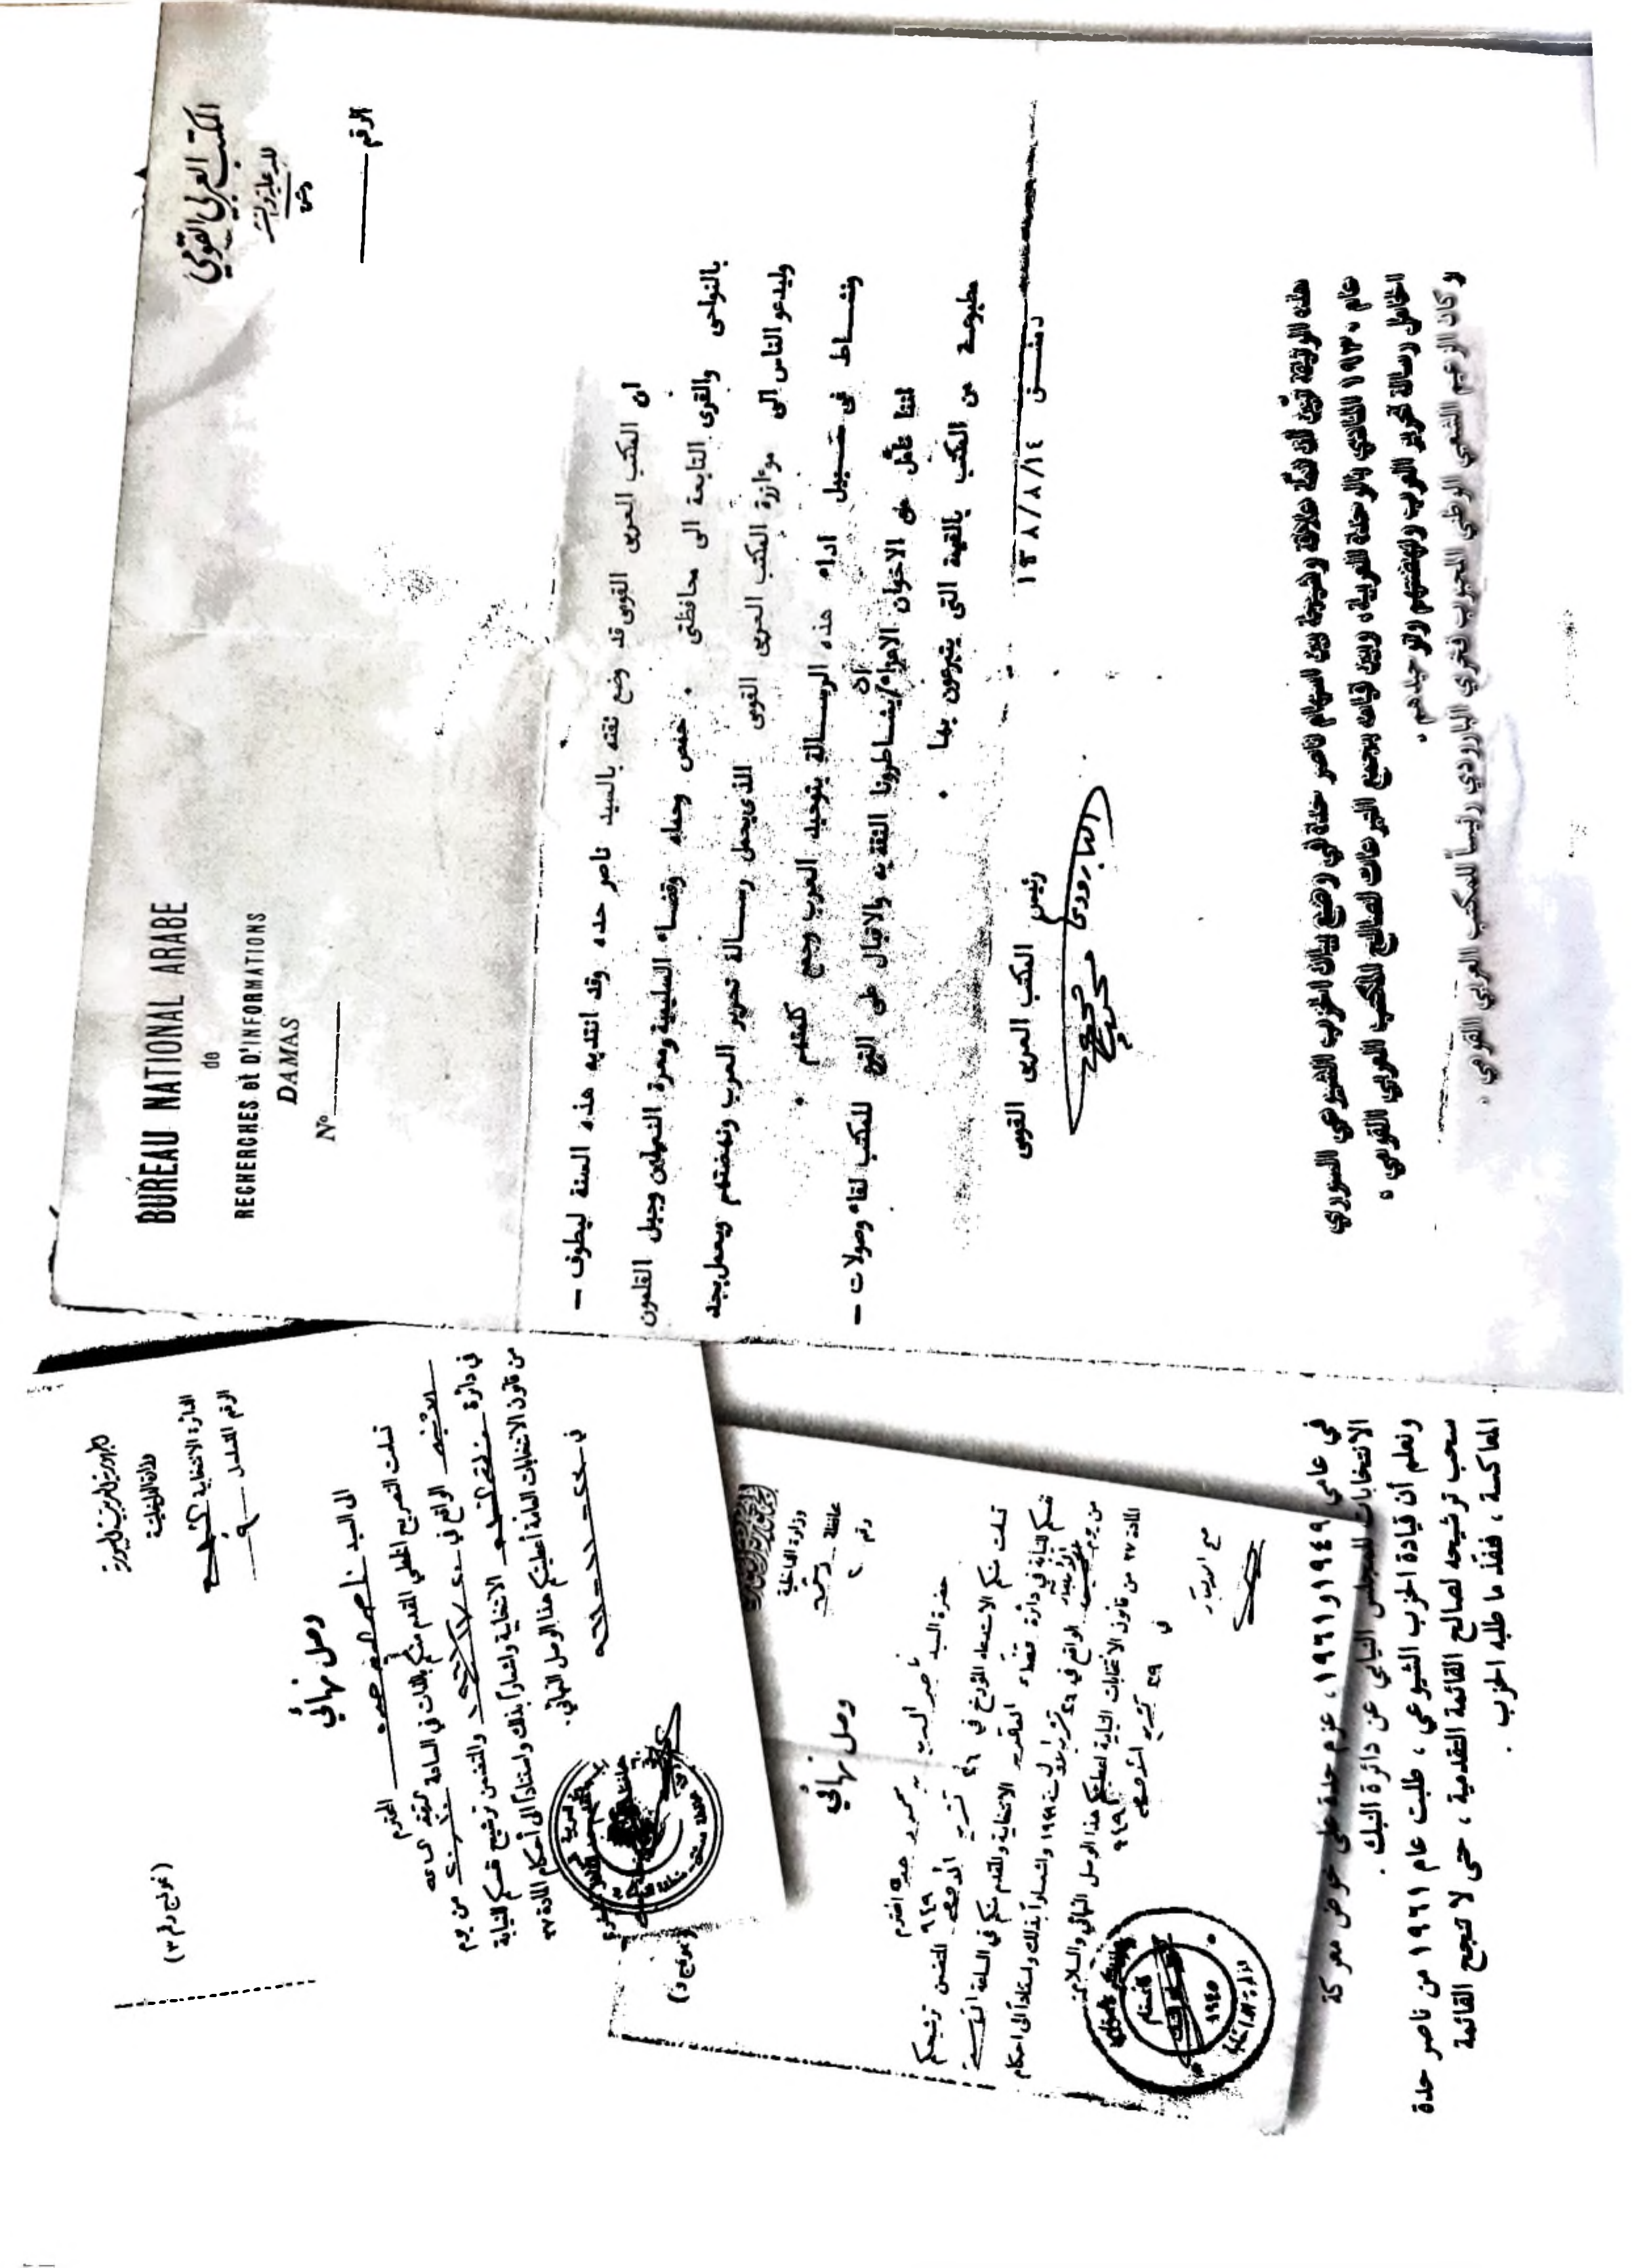 BUREAU NATIONAL ARABE
de
RECHERCHES et D'INFORMATIONS
DAMAS
Nº
المكتب العربي القومي
للدعاية والنشر
دمشق
الرقم
ان المكتب العربي القومي قد وضع ثقته بالسيد ناصر حده وقد انتدبه هذه السنة ليطوف –
بالنواحي والقرى التابعة الى محافظتي حمص وحماه وقضاء السلمية ومعرة النعمان وجبل القلمون
وليدعو الناس الى موءازرة المكتب العربي القومي الذي يحمل رسالة تحرير العرب ونهضتهم ويعمل بجد
ونشاط في سبيل اداء هذه الرسالة بتوحيد العرب وجمع كلمتهم .
اننا نأمل من الاخوان الاعزاء/ان يشاطرونا الثقة به والاقبال على التبرع للمكتب لقاء وصولات –
مطبوعة من المكتب بالقيمة التي يتبرعون بها .
دمشق ١٩٣٨/٨/١٤
رئيس المكتب العربي القومي
فخري البارودي
هذه الوثيقة تبين أن ثمة علاقة وشيجة بين اسهام ناصر حدة في وضع بيان الحزب الشيوعي السوري
عام ١٩٣٠ المنادي بالوحدة العربية، وبين قيامه بجمع التبرعات لصالح المكتب العربي القومي ،
الحامل رسالة تحرير العرب ونهضتهم وتوحيدهم .
و كان الزعيم الشعبي الوطني المحبوب فخري البارودي رئيساً للمكتب العربي القومي .
(نموذج رقم ٣)
الجمهورية العربية السورية
وزارة الداخلية
الدائرة الانتخابية
الرقم المتسلسل ٩
وصل نهائي
الى السيد ناصر حده المحترم
تسلمت التصريح الخطي المقدم منكم بالذات في الساعة من يوم
الاثنين الواقع في والمتضمن ترشيح نفسكم للنيابة
في دائرة الانتخابية واشعاراً بذلك واستناداً الى أحكام المادة ٢٧
من قانون الانتخابات العامة أعطيتكم هذا الوصل النهائي .
وزارة الداخلية
محافظة دمشق
رقم ٢
وصل نهائي
حضرة السيد ناصر حده المحترم
تسلمت منكم الاستدعاء المؤرخ في ٢٦ تشرين الاول ٩٤٩ المتضمن ترشيحكم
نفسكم للنيابة في دائرة قضاء الانتخابية والمقدم منكم في الساعة
من يوم الواقع في ١٩٤٩ واشعاراً بذلك واستناداً الى احكام
المادة ٢٧ من قانون الانتخابات النيابية اعطيتكم هذا الوصل النهائي والسلام
في ٢٩ ٩٤٩
١٩٤٥
في عامي ١٩٤٩ و ١٩٦١ ، عزم حدة على خوض معركة
الانتخابات للمجلس النيابي عن دائرة النبك .
ونعلم أن قيادة الحزب الشيوعي ، طلبت عام ١٩٦١ من ناصر حدة
سحب ترشيحه لصالح القائمة التقدمية ، حتى لا تنجح القائمة
المعاكسة ، فنفذ ما طلبه الحزب .